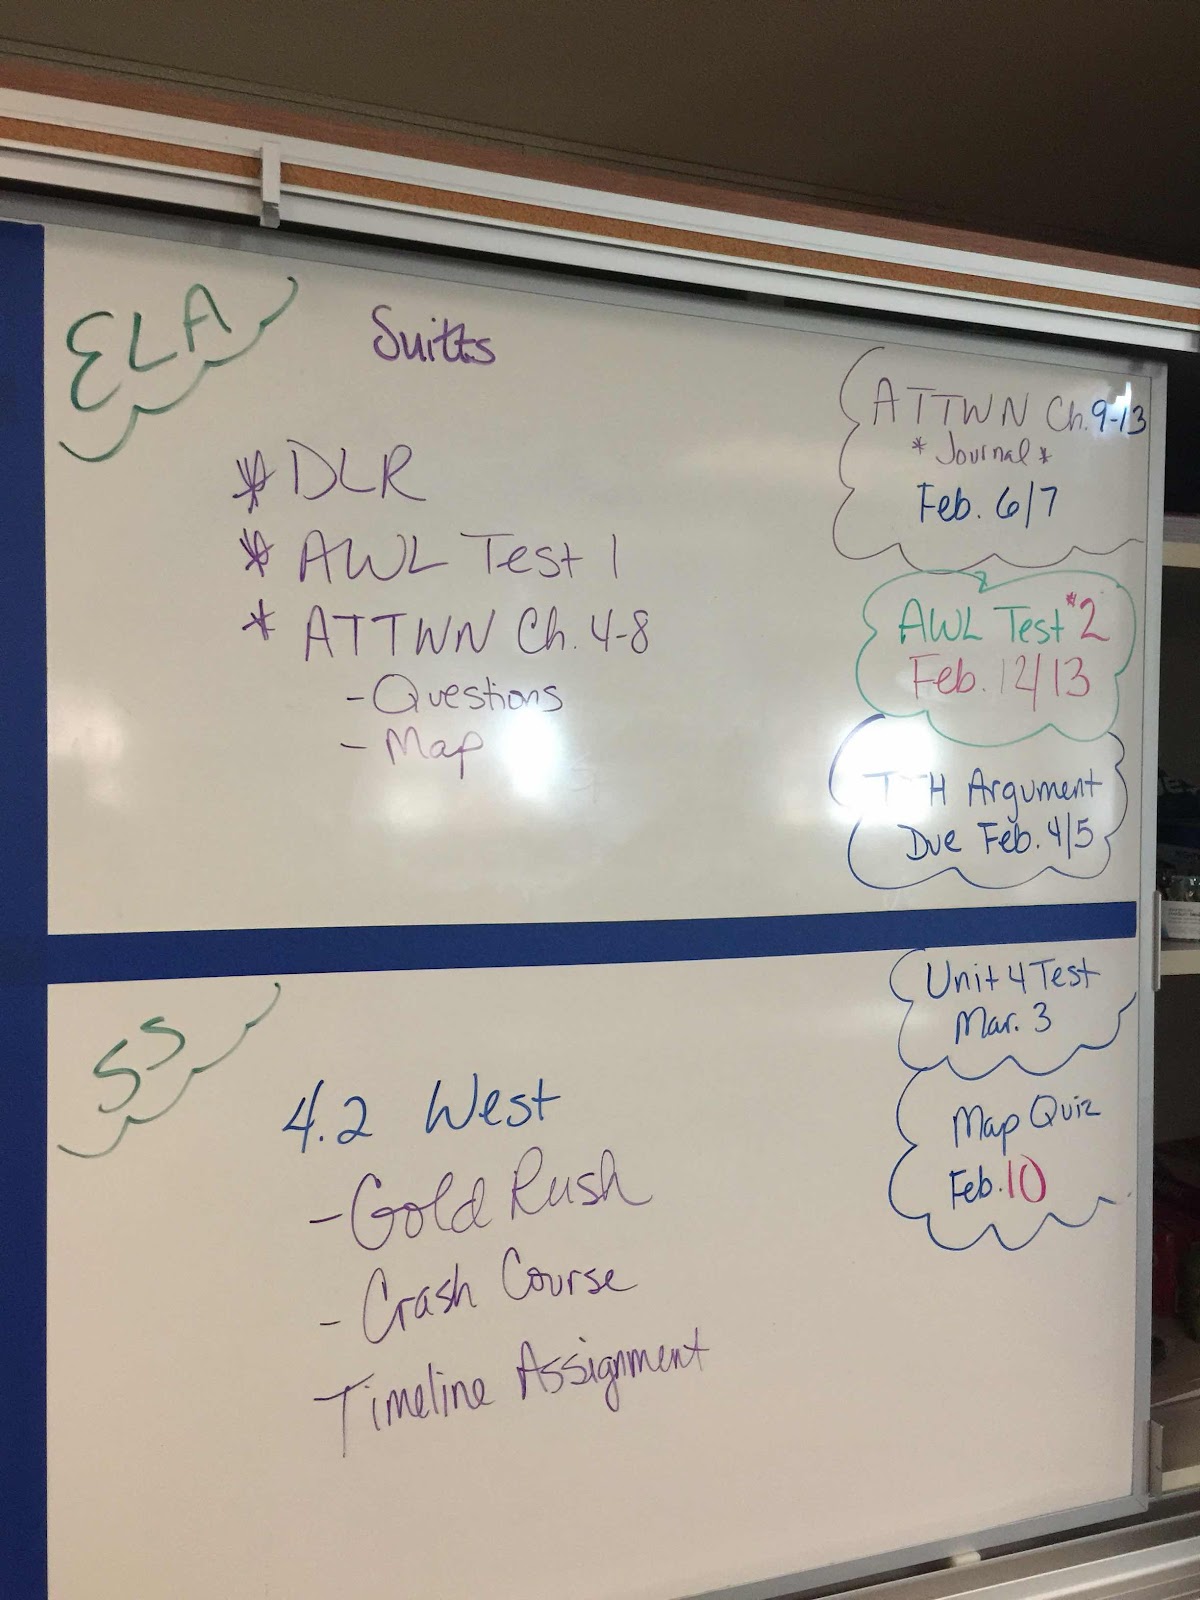 ELA
Suitts
* DLR
* AWL Test 1
* ATTWN Ch. 4-8
- Questions
- Map
ATTWN Ch. 9-13
* Journal *
Feb. 6/7
AWL Test #2
Feb. 12/13
Argument
Due Feb. 4/5
SS
4.2 West
- Gold Rush
- Crash Course
Timeline Assignment
Unit 4 Test
Mar. 3
Map Quiz
Feb. 10